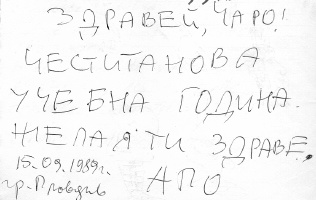 ЗДРАВЕЙ, ЧАРО!
ЧЕСТИТА НОВА
УЧЕБНА ГОДИНА.
ЖЕЛАЯ ТИ ЗДРАВЕ,
15.09.1989г. АПО
гр. Пловдив